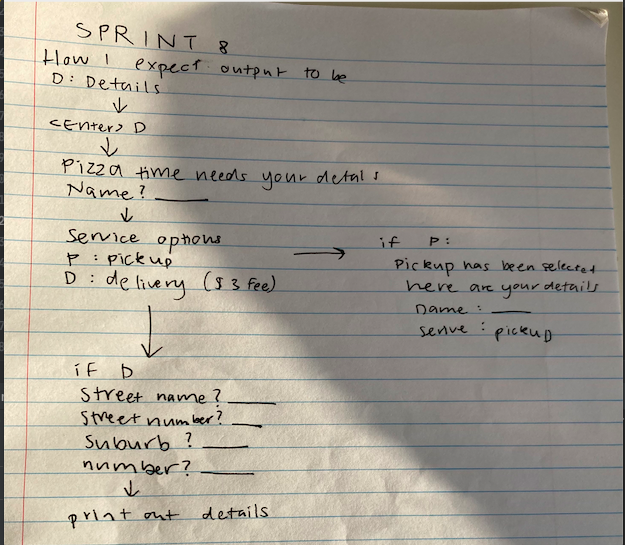 SPRINT 8
How I expect output to be
D: Details
↓
<Enter> D
↓
Pizza time needs your details
Name? ____
↓
Service options
P : pickup
D : delivery ($3 fee)
→
if P:
Pickup has been selected
here are your details
name : ____
serve : pickup
↓
if D
Street name? ____
Street number? ____
Suburb ? ____
number? ____
↓
print out details